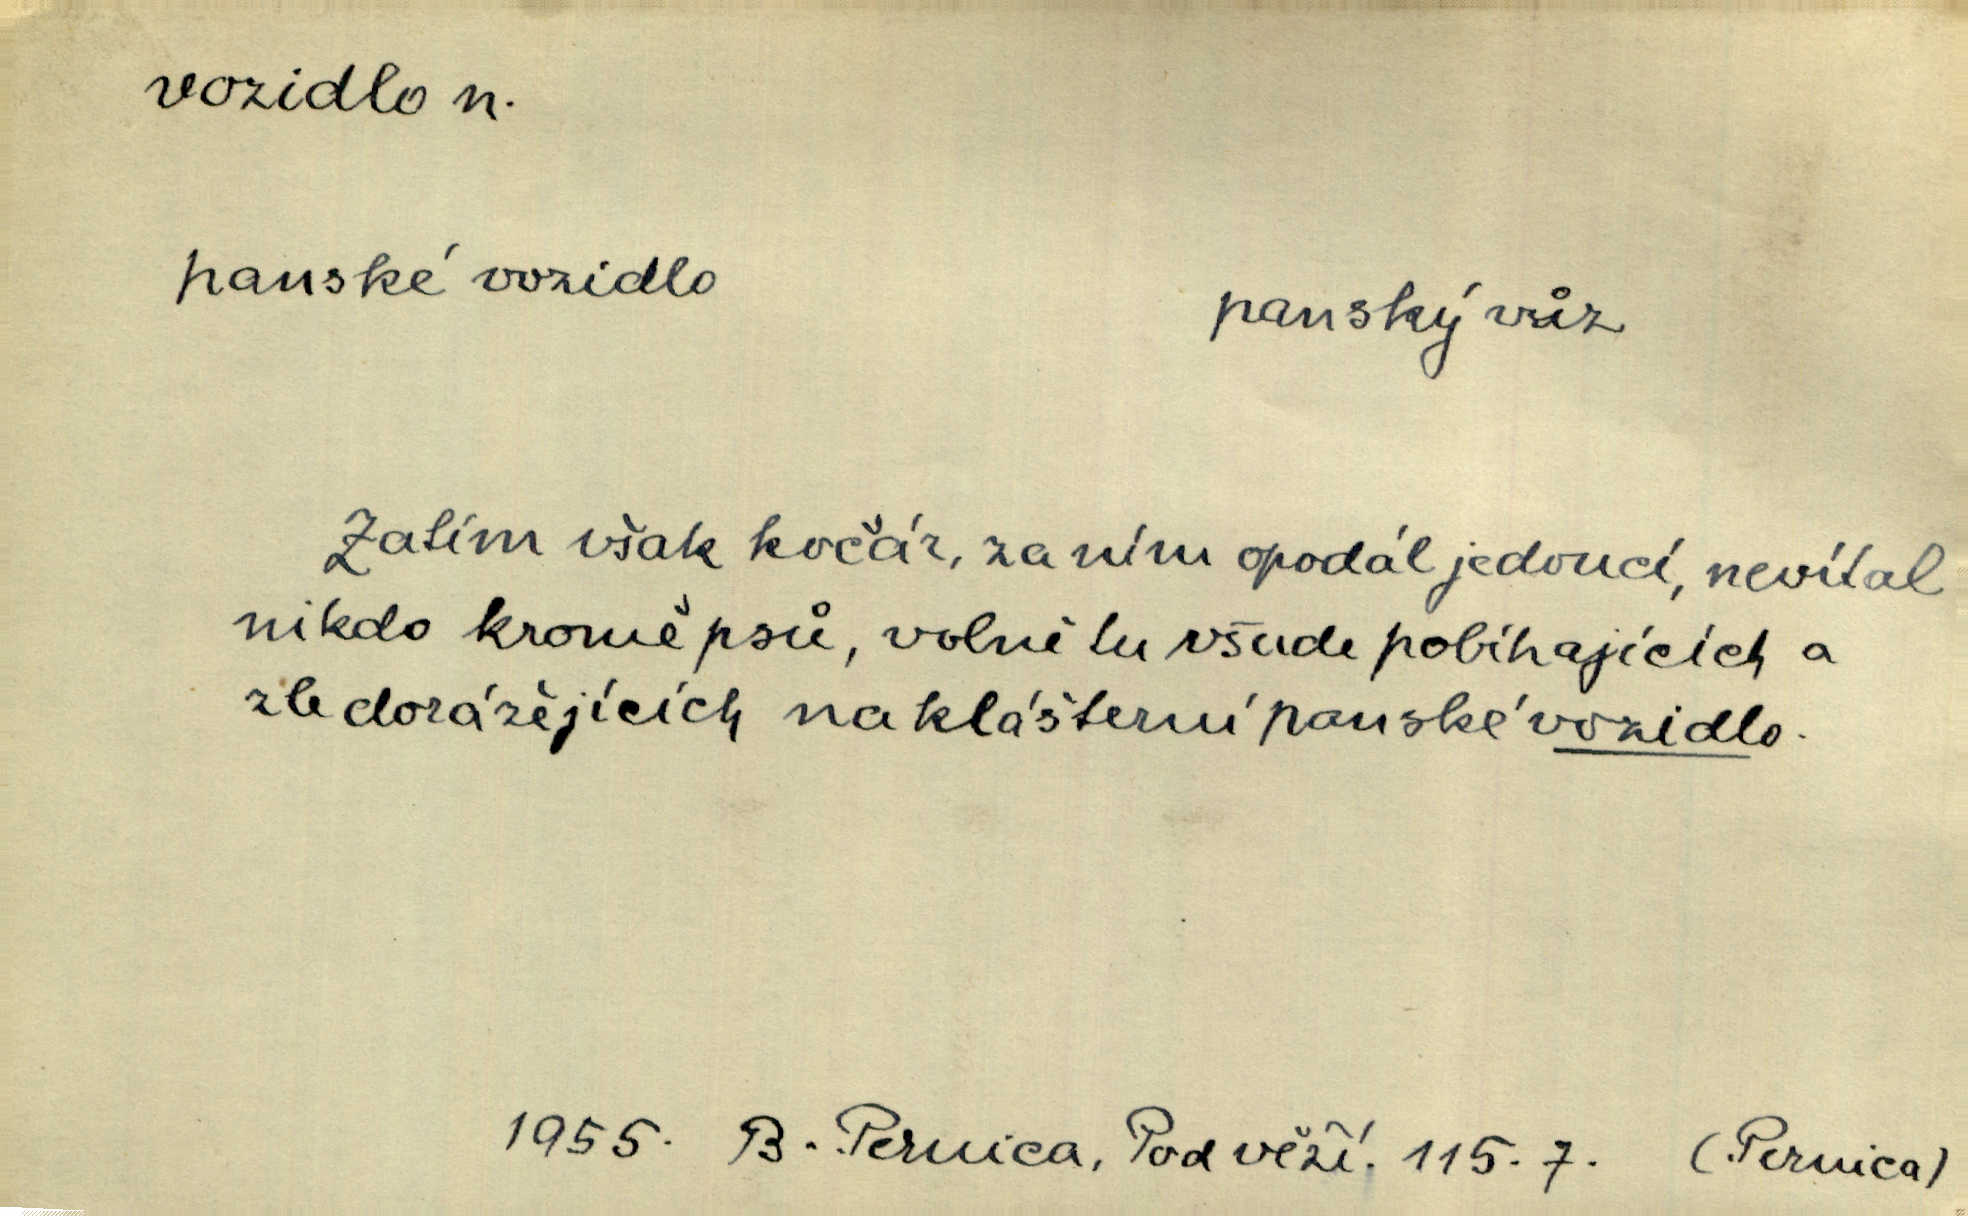 vozidlo n.
panské vozidlo
panský vůz
Zatím však kočár, za ním opodál jedoucí, nevítal
nikdo kromě psů, volně tu všude pobíhajících a
zle dorázějících na klášterní panské vozidlo.
1955. B. Pernica, Pod věží. 115. 7. (Pernica)